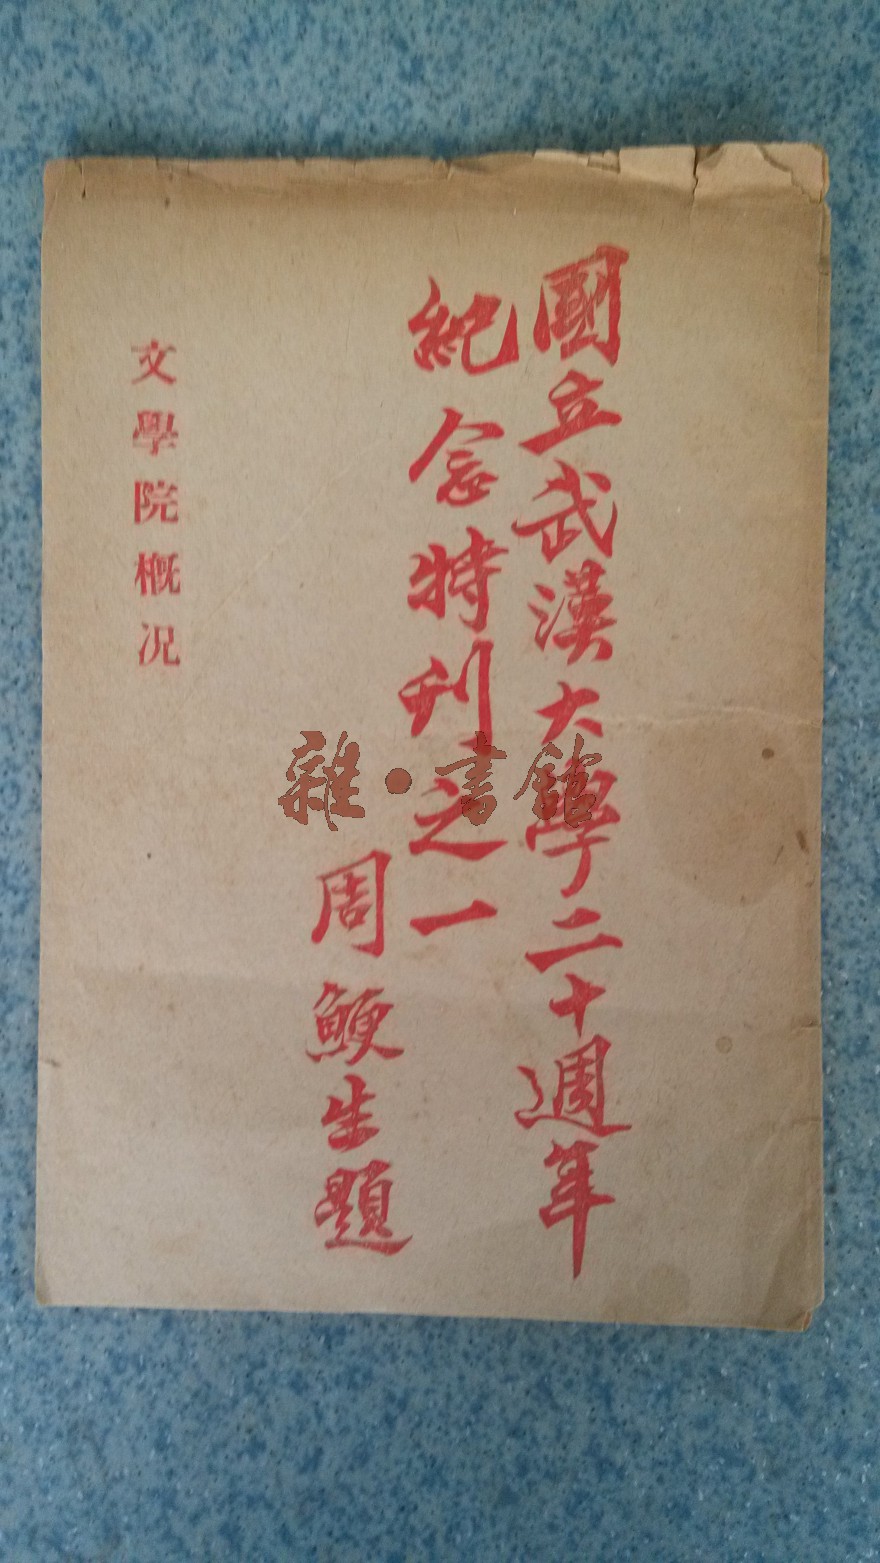 國立武漢大學二十週年
紀念特刊之一
周鯁生題
文學院概况
雜·書館